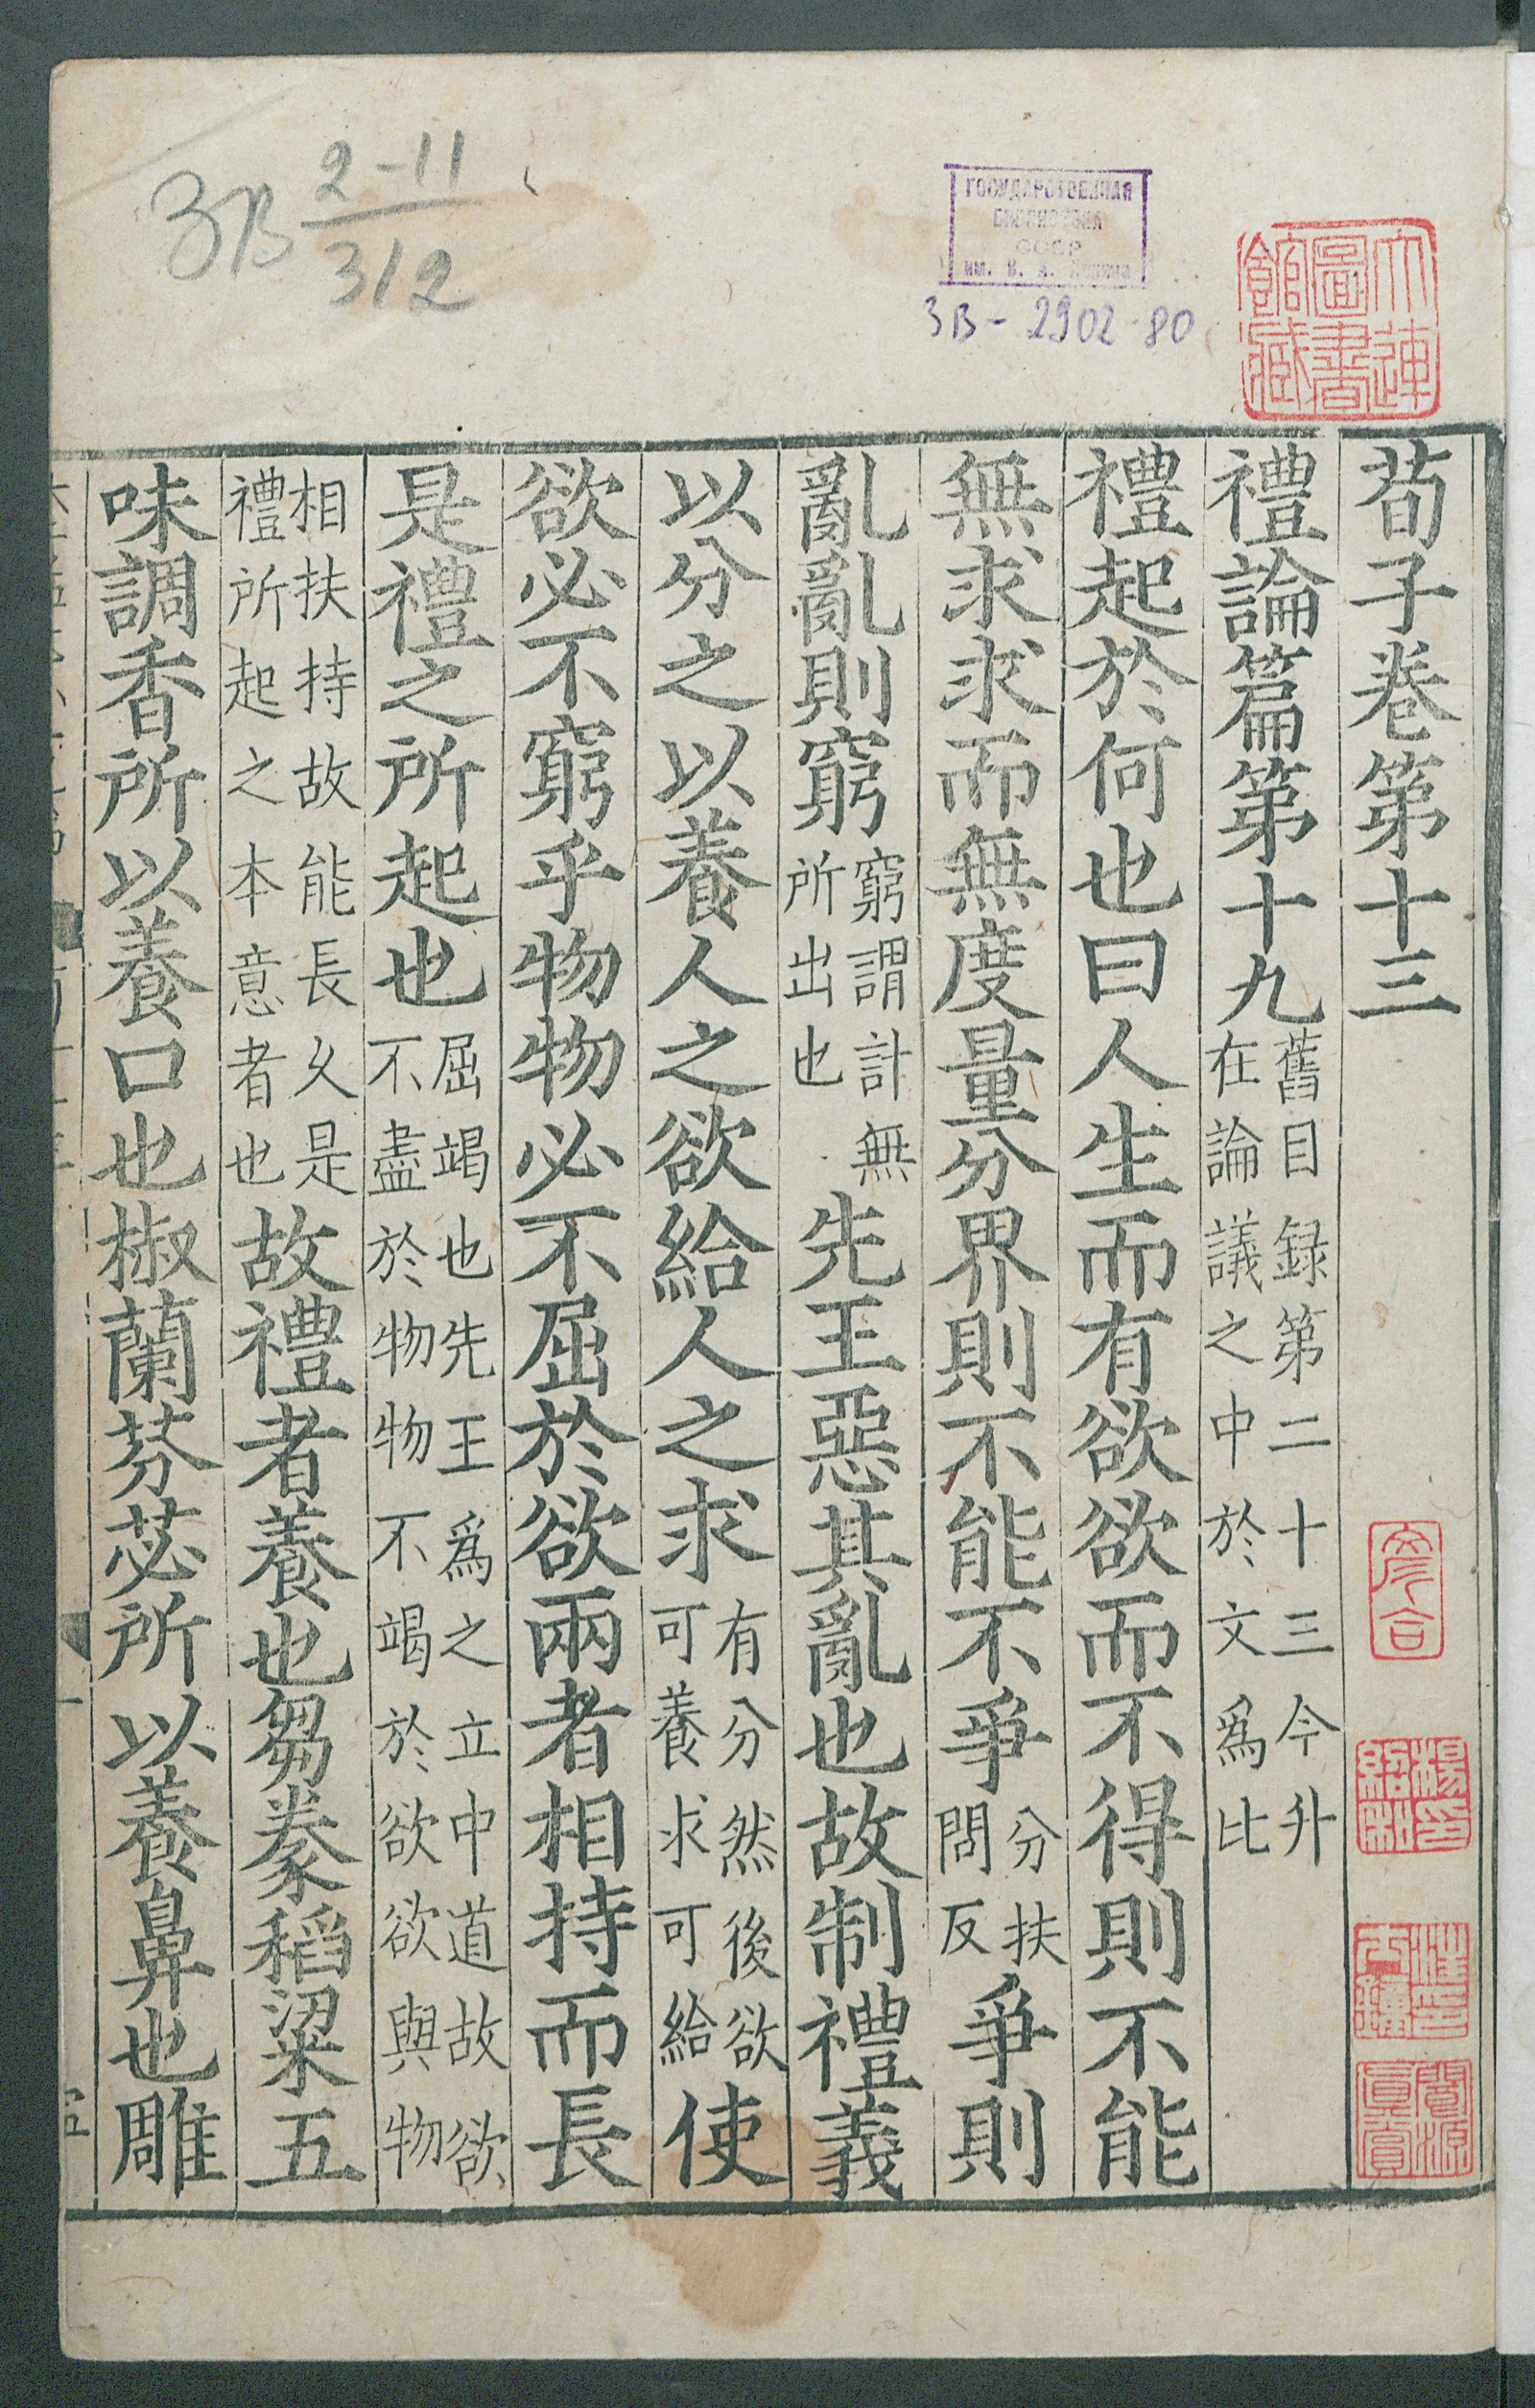 3B 2-11
312
ГОСУДАРСТВЕННАЯ
БИБЛИОТЕКА
СССР
им. В. И. Ленина
3B-2902-80
大連
圖書
館藏
荀子卷第十三
禮論篇第十九舊目録第二十三今升在論議之中於文爲比
禮起於何也曰人生而有欲欲而不得則不能
無求求而無度量分界則不能不爭分扶問反爭則
亂亂則窮窮謂計無所出也先王惡其亂也故制禮義
以分之以養人之欲給人之求有分然後欲可養求可給使
欲必不窮乎物物必不屈於欲兩者相持而長
是禮之所起也屈竭也先王爲之立中道故欲不盡於物物不竭於欲欲與物
相扶持故能長久是禮所起之本意者也故禮者養也芻豢稻粱五
味調香所以養口也椒蘭芬苾所以養鼻也雕
楊印
紹和